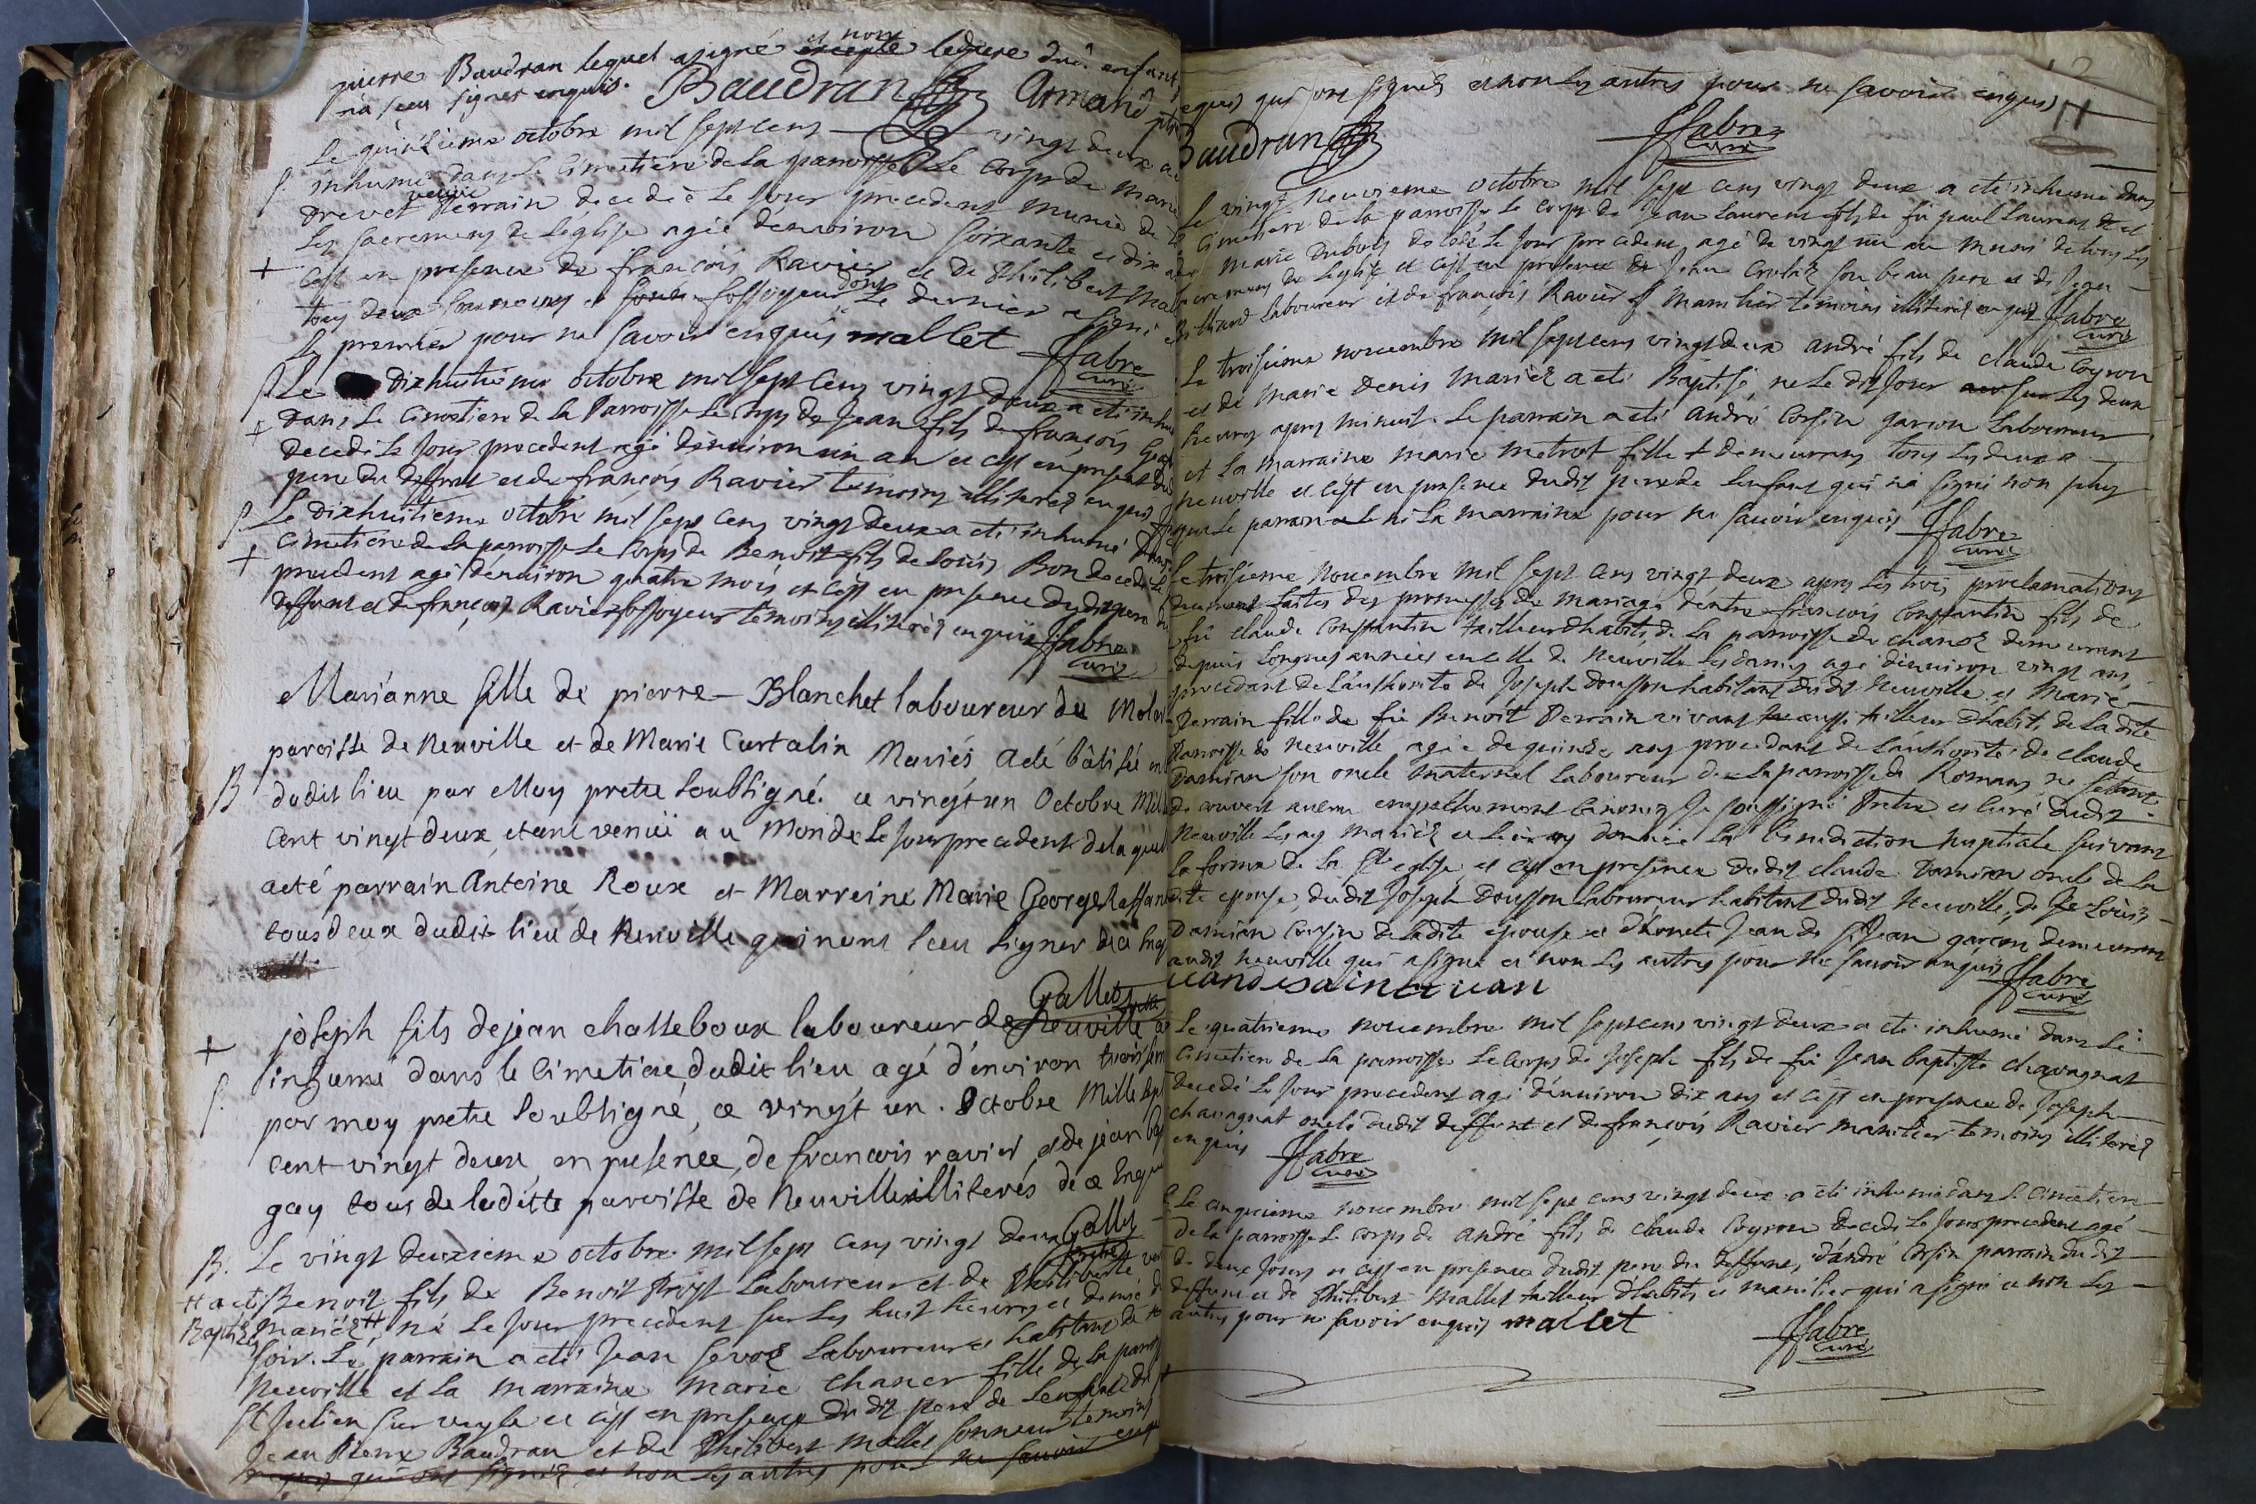 pierre Baudran lequel a signé et non excepté le pere dud. enfant
n'a sceu signer enquis. Baudran Armand ptre
Le quinzieme octobre mil sept cens vingt deux a
inhumé dans le Cimetiere de la parroisse Le corps de Marie
Drevet veuve Perrain decedéé Le jour precedent munie de
Les sacremens de L'église agéé d'environ soixante et dix ans
c'est en presence de françois Ravier et de Philibert Mal
tous deux fossoyeur dont Le dernier a signé
Le premier pour ne savoir enquis mallet ffabre
curé
Le dixhuitieme octobre mil sept cens vingt deux a eté inhu
dans Le Cimetiere de la Parroisse Le corps de Jean fils de françois
decedé Le jour precedent agé d'environ un an et c'est en presence dud
pere du deffunt et de françois Ravier temoins illiterez enquis
Le dixhuitieme octobre mil sept cens vingt deux a eté inhumé dans
Cimetiere de la parroisse Le Corps de Benoit fils de Loüis Bon decedé Le
precedent agé d'environ quatre mois et c'est en presence dudit pere du
deffunt et de françois Ravier fossoyeur temoins illiterez enquis ffabre
curé
Marianne fille de pierre Blanchet laboureur du Molar
B paroisse de Neuville et de Marie Curtalin Mariés a eté bâtisée en
dudit lieu par Moy pretre soubsigné. ce vingt un Octobre Mil
Cent vingt deux, etant venuë au Monde Le jour precedent de laquel
a eté parrain Antoine Roux et Marreine Marie George Raffan
tous deux dudit lieu de Neuville qui n'ont sceu signer de ce Enq
Gallet ptre
+ joseph fils de jean chatteboux laboureur de Neuville a
inhumé dans le Cimetiere dudit lieu agé d'environ trois sem
par moy pretre soubsigné, ce vingt un. Octobre Mille sept
cent vingt deux, en presence, de francois ravier, et de jean bap
gay tous de laditte paroisse de Neuville illiterés de ce Enqu
Gallet
B. Le vingt deuxieme octobre mil sept cens vingt deux
# a eté Benoit fils de Benoit Prost Laboureur et de Philiberte
Baptisé mariéz # né Le jour precedent sur Les huit heures et demie du
soir. Le parrain a eté Jean Sevoz Laboureur et habitant de
Neuville et La marraine Marie Chaner fille de La parroi
St Julien sur veyle et c'est en presence du dit pere de Lenfant dudit
Jean Pierre Baudran et de Philibert Mallet sonneur temoins
requis qui ont signéz et non Les autres pour ne savoir enquis
requis qui ont signéz et non Les autres pour ne savoir enquis
11
Baudran ffabre
curé
Le vingt neuvieme octobre mil sept cens vingt deux a eté inhumé dans
Cimetiere de la parroisse Le corps de Jean Laurent fils de fû paul Laurent et
Marie Dubois decedé Le jour precedent agé de vingt un an muni de tous Les
sacremens de L'eglise et c'est en presence de Jean Crolaz son beau pere et de Jean
Laboureur et de françois Ravier manilier temoins illiterez enquis ffabre
curé
Le troisieme novembre mil sept cens vingt deux andré fils de claude Coyron
et de Marie Denis Mariéz a eté Baptisé, né Le dit jour sur Les deux
heures apres minuit. Le parrain a eté André Corsin garcon Laboureur
et La marraine marie metrat fille demeurans tous Les deux a
neuville et c'est en presence dudit pere de Lenfant qui n'a signé non plus
que Le parrain ni La marraine pour ne savoir enquis ffabre
curé
Le troisieme Novembre mil sept cens vingt deux apres Les trois proclamations
deuement faites des promesses de mariage d'entre françois Constantin fils de
fû claude Constantin tailleur d'habits de La parroisse de chanoz demeurant
depuis Longues années en celle de Neuville Les dames agé d'environ vingt ans
procedant de L'authorité de Joseph Dousson habitant dudit Neuville, et Marie
Perrain fille de fû Benoit Perrain vivant aussy tailleur d'habits de La dite
Parroisse de Neuville agéé de quinze ans procedant de L'authorité de claude
Damian son oncle maternel Laboureur de La parroisse de Romans, ne s'etant
decouvert aucun empechement Canonique Je soussigné Pretre et Curé dudit
Neuville Les ay mariéz et Leur ay donnéé La Benediction nuptiale suivant
La forme de La Ste eglise, et c'est en presence dudit claude Damian oncle de La
dite epouse, dudit Joseph Dousson Laboureur habitant dudit Neuville, de Loüis
Damian Cousin de Ladite epouse et d'honete Jean de St Jean garcon demeurant
audit Neuville qui a signé et non Les autres pour ne savoir enquis ffabre
jean desainct jean curé
Le quatrieme novembre mil sept cens vingt deux a eté inhumé dans Le
Cimetiere de La parroisse Le Corps de Joseph fils de fû Jean baptiste Chavagnat
decedé Le jour precedent agé d'environ dix ans et c'est en presence de Joseph
chavagnat oncle dudit deffunt et de françois Ravier manilier temoins illiterez
enquis ffabre
curé
Le cinquieme novembre mil sept cens vingt deux a eté inhumé dans Le Cimetiere
de La parroisse Le Corps de André fils de Claude Coyron decedé Le jour precedent agé
de deux jours et c'est en presence dudit pere du deffunt, d'andré Corsin parrain du dit
deffunt et de Philibert Mallet tailleur d'habits et manilier qui a signé et non Les
autres pour ne savoir enquis mallet ffabre
curé